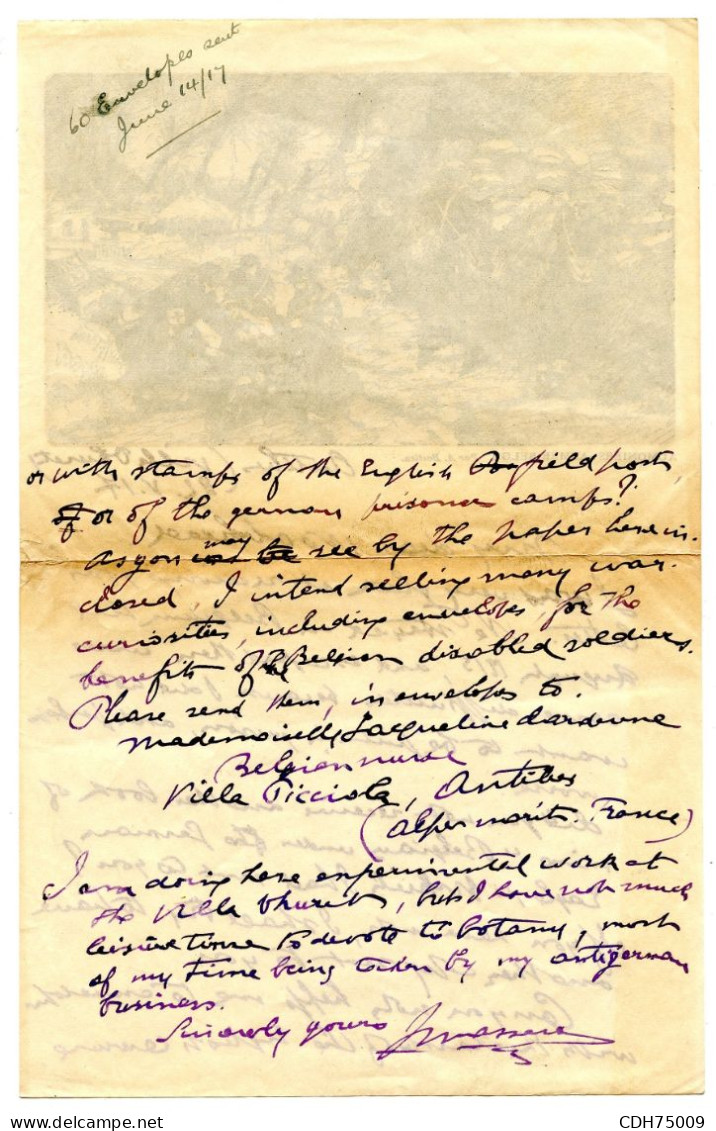 60 Envelopes sent
June 14/17
or with stamps of the English field posts
or of the german prisoner camps?
As you may see by the paper herein-
closed, I intend selling many war-
curiosities, including envelopes for the
benefits of Belgian disabled soldiers.
Please send them, in envelopes to.
Mademoiselle Jacqueline Dardenne
Belgian nurse
Villa Picciola, Antibes
(Alpes marits. France)
I am doing here experimental work at
the Villa Thuret, but I have not much
leisure time to devote to botany, most
of my time being taken by my antigerman
business.
Sincerely yours J Massart
CDH75009